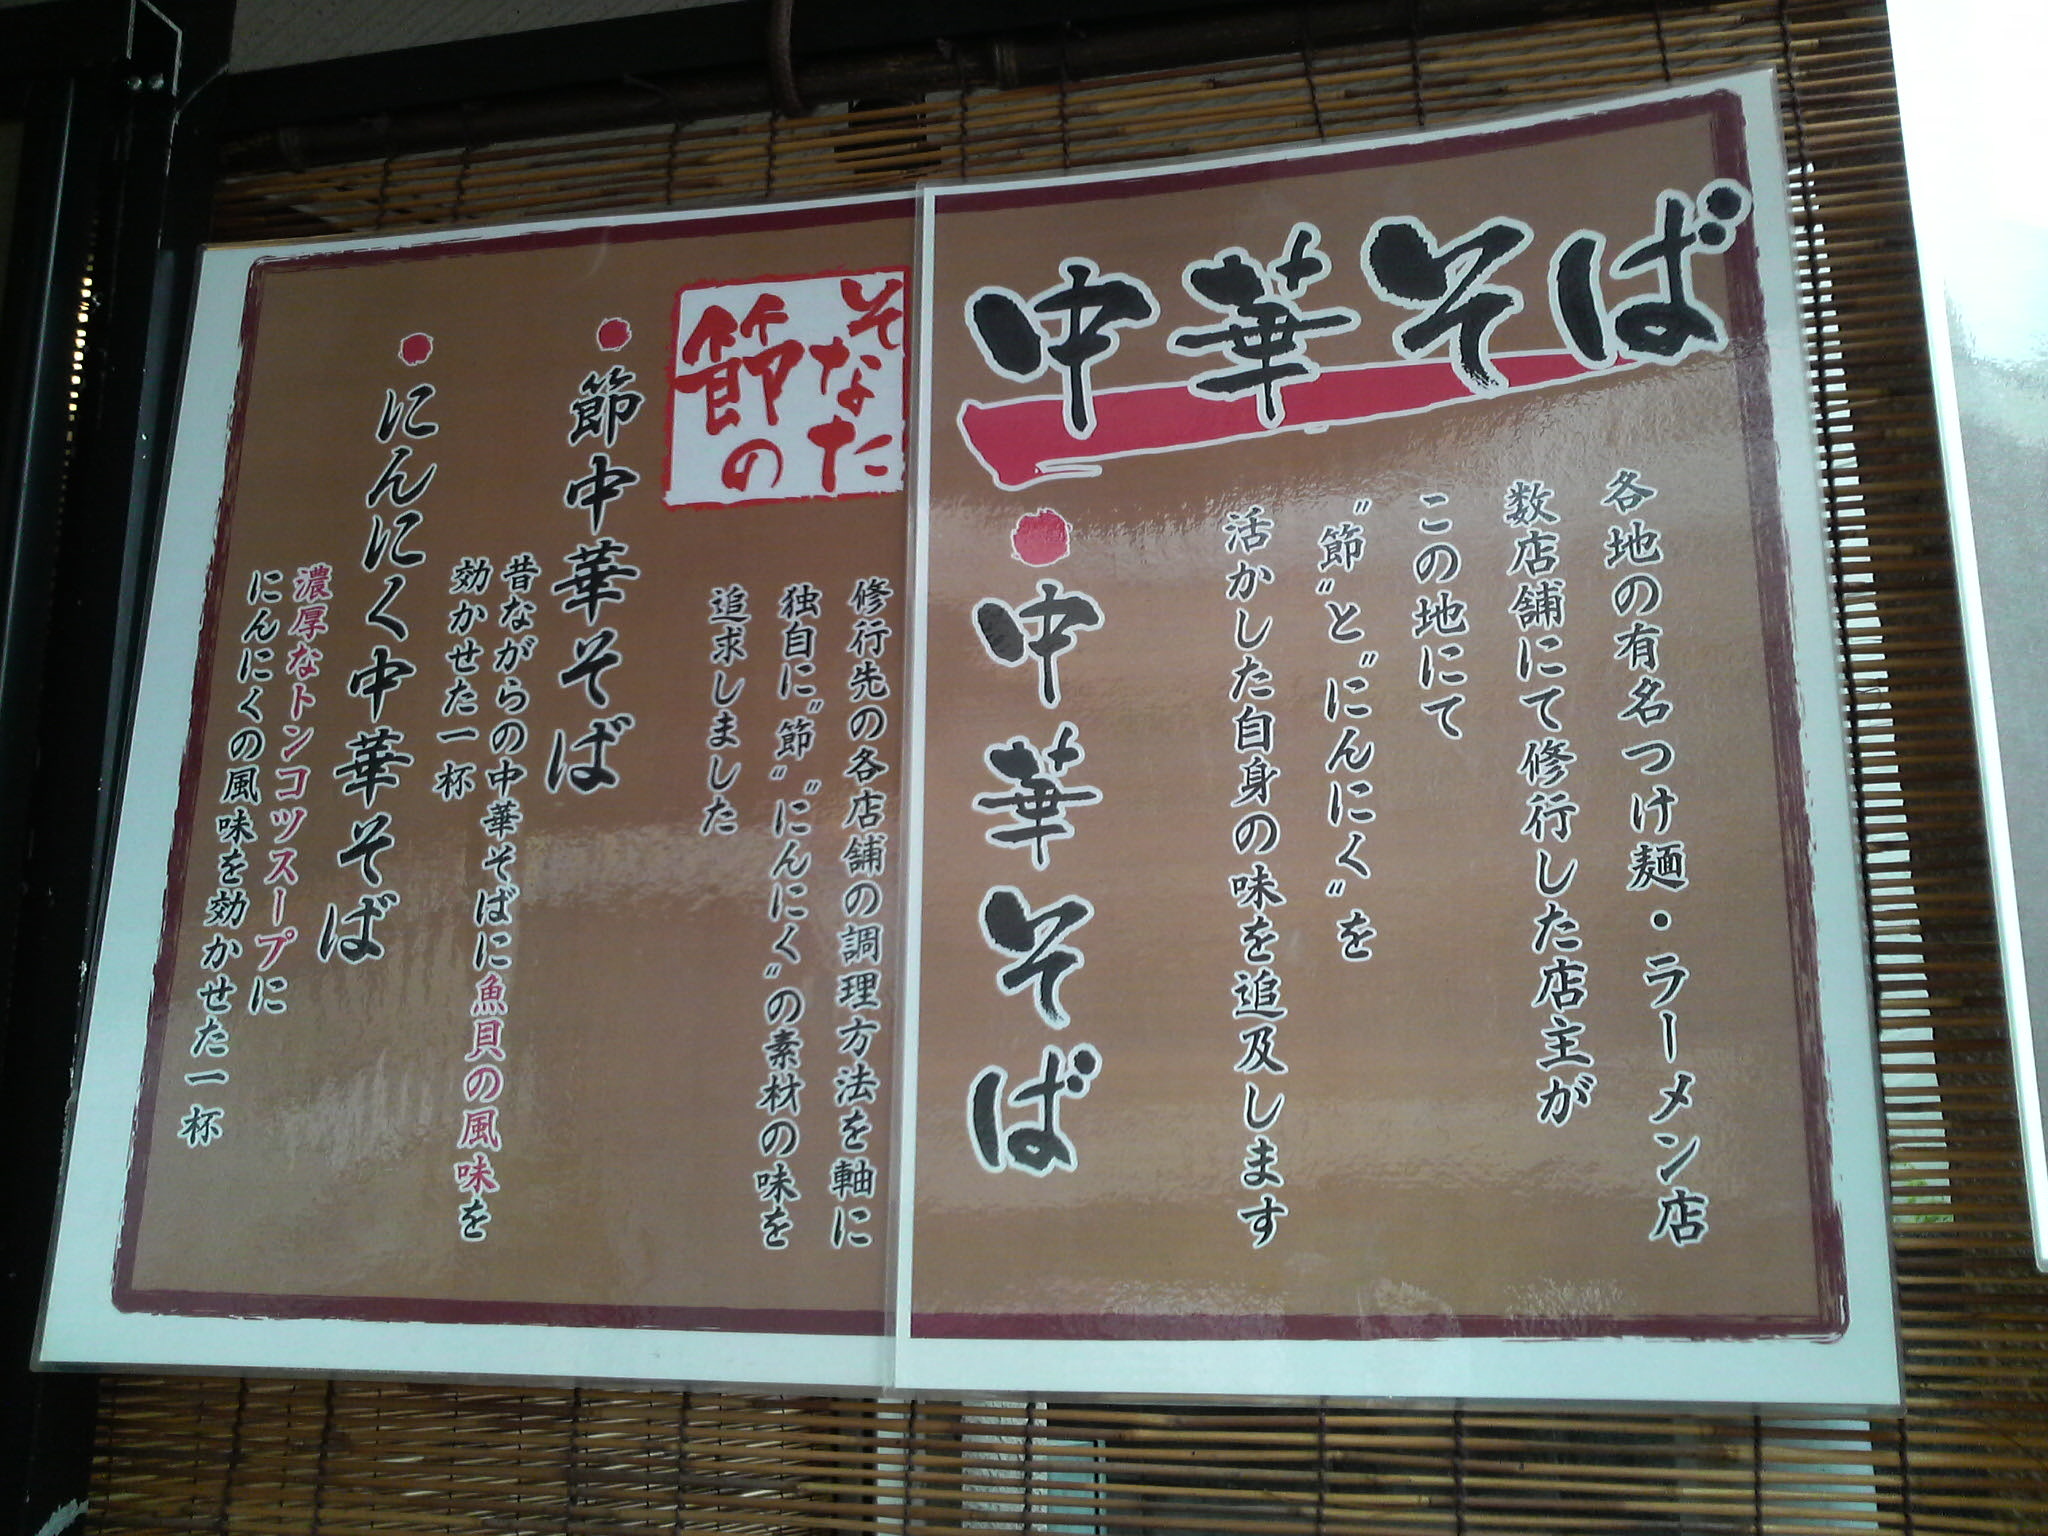 中華そば
各地の有名つけ麺・ラーメン店
数店舗にて修行した店主が
この地にて
"節"と"にんにく"を
活かした自身の味を追及します
●中華そば
そなた
節の
修行先の各店舗の調理方法を軸に
独自に"節" "にんにく"の素材の味を
追求しました
●節中華そば
昔ながらの中華そばに魚貝の風味を
効かせた一杯
●にんにく中華そば
濃厚なトンコツスープに
にんにくの風味を効かせた一杯